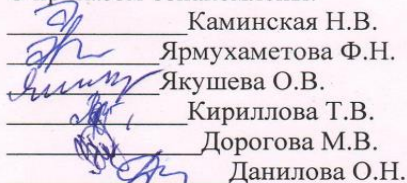 Каминская Н.В.
Ярмухаметова Ф.Н.
Якушева О.В.
Кириллова Т.В.
Дорогова М.В.
Данилова О.Н.